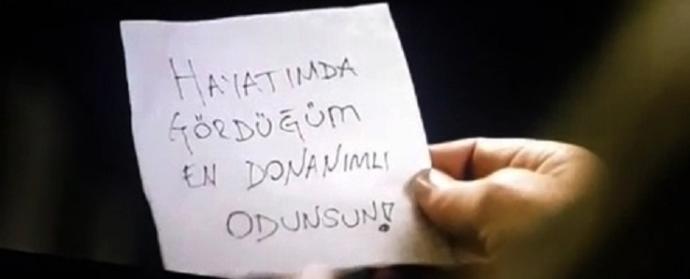 HAYATIMDA
GÖRDÜĞÜM
EN DONANIMLI
ODUNSUN!